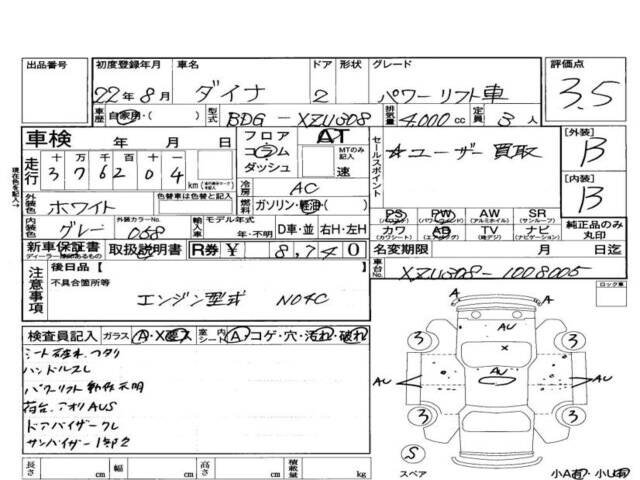 出品番号 初度登録年月 車名 ドア 形状 グレード 評価点
22年8月 ダイナ 2 パワーリフト車 3.5
車歴 自家用・( ) 型式 BDG-XZU308 排気量 4,000 cc 定員 3人
車検 年 月 日 フロア コラム ダッシュ AT MTのみ記入 速 セールスポイント ☆ユーザー買取 [外装] B
走行 十 万 千 百 十 一
376204 km 冷房 AC [内装] B
外装色 ホワイト 色替車は色替と記入 燃料 ガソリン・軽油・( )
PS (パワステ) PW (パワーウィンドウ) AW (アルミホイル) SR (サンルーフ)
内装色 グレー 外装カラーNo. 058 輸入車 モデル年式 年・不明 D車・並 右H・左H
カワ (カワシート) AB (エアバッグ) TV (地デジ) ナビ (ナビゲーション) 純正品のみ丸印
新車保証書 ディーラー捺印あるもの 取扱説明書 R券 ¥ 8,740 名変期限 月 日迄
注意事項 後日品[ ] 車台No. XZU308-1008005
不具合箇所等 ロック車
エンジン型式 N04C
検査員記入 ガラス A・X 室内 シート A・コゲ・穴・汚れ・破れ
ハンドルスレ
パワーリフト動作不明
荷台、アオリAUS
ドアバイザーワレ
長さ cm 幅 cm 高さ cm 積載量 kg
A A
AU
3 3
X
AU AU
3 3
S
スペア
小A有・小U有
現在色を記入→